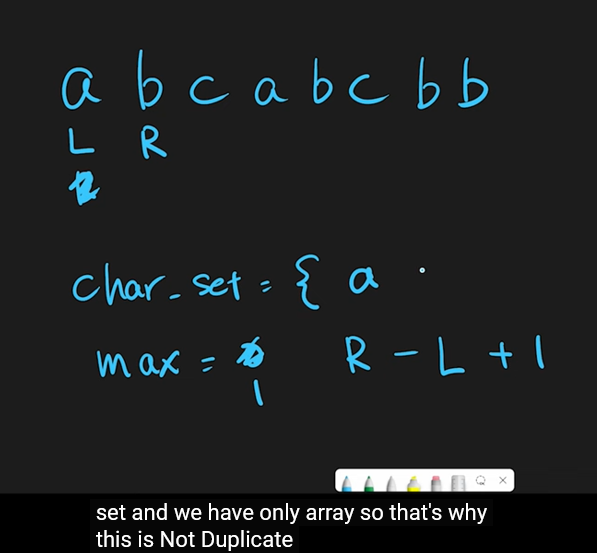 a b c a b c b b
L R
char_set = { a
max = R - L + 1
1
set and we have only array so that's why
this is Not Duplicate